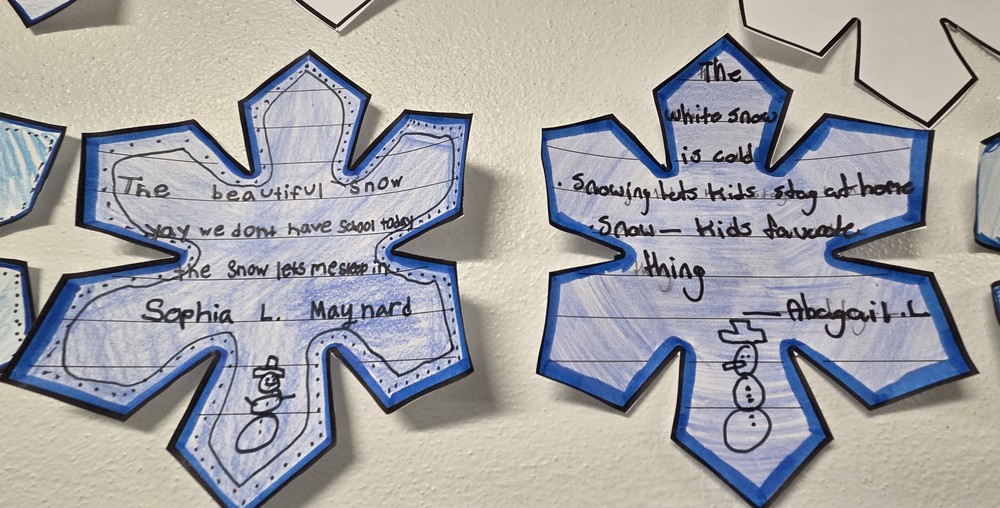 The beautiful snow
yay we dont have school today
the snow lets me sleep in
Sophia L. Maynard
The
white snow
is cold
Snowing lets kids stay at home
Snow — kids favorate
thing
— Abdgail.L